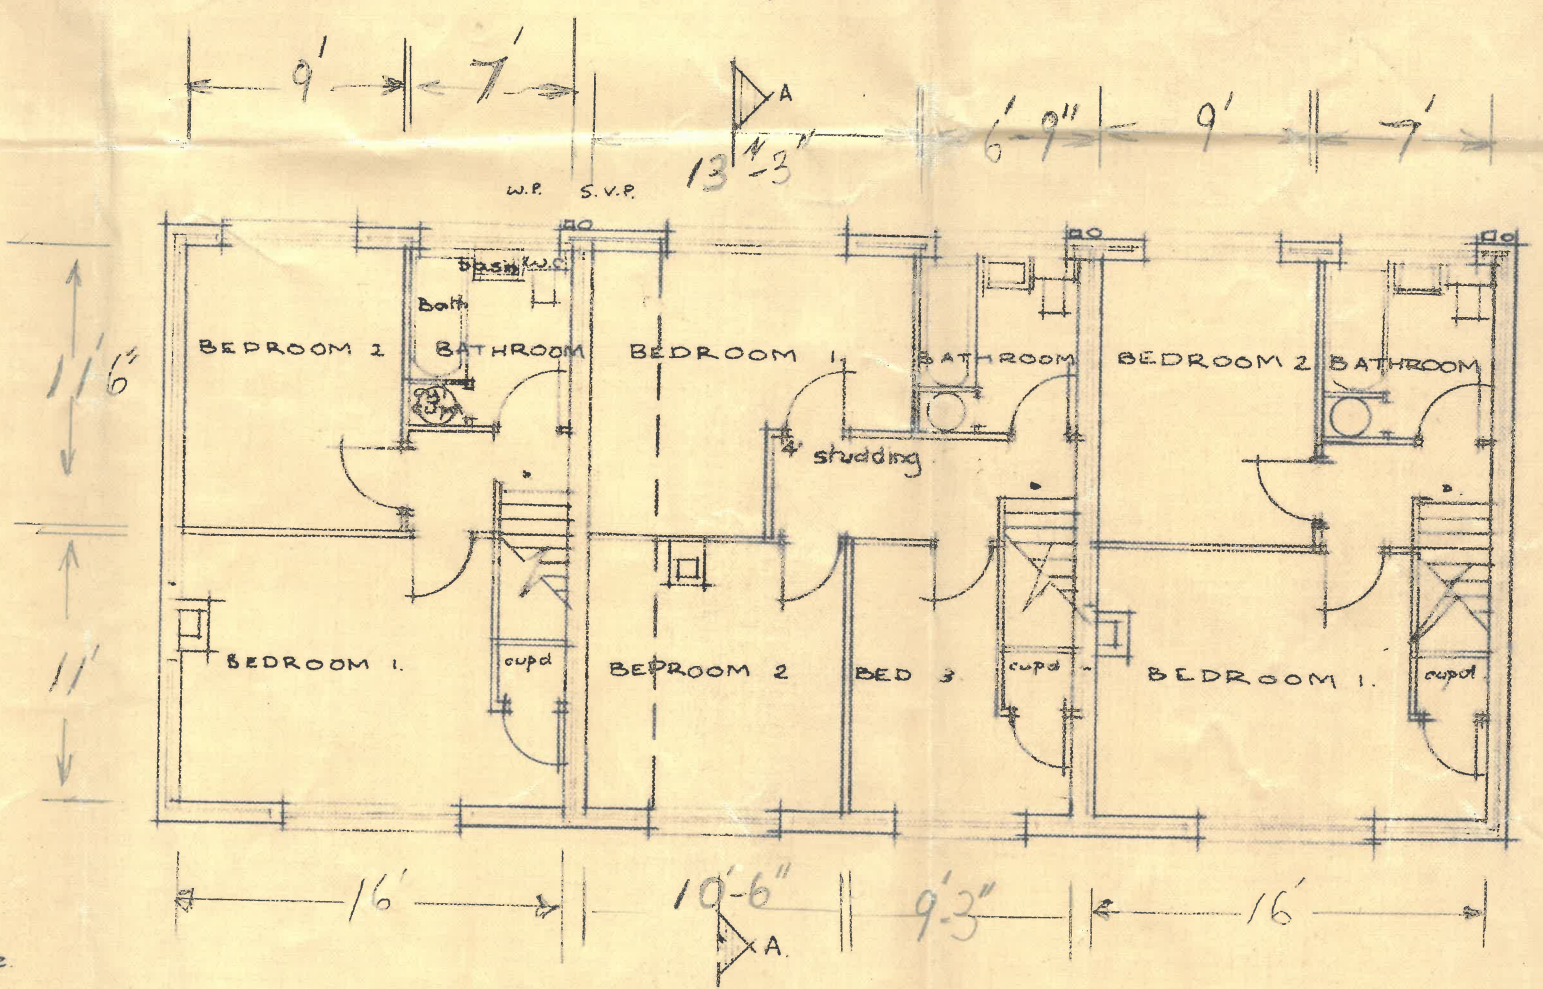 9' 7' A 6'-9" 9' 7'
13'-3"
W.P. S.V.P.
Basn W.C.
Bath
11'6"
BEDROOM 2 BATHROOM BEDROOM 1. BATHROOM BEDROOM 2 BATHROOM
4" studding
11'
BEDROOM 1. cupd BEDROOM 2 BED 3 cupd BEDROOM 1. cupd.
16' 10'-6" 9'-3" 16'
A.